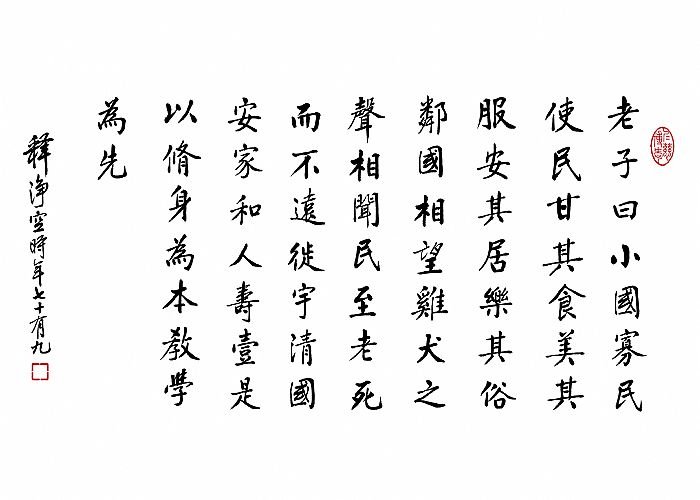 老子曰小國寡民
使民甘其食美其
服安其居樂其俗
鄰國相望雞犬之
聲相聞民至老死
而不遠徙宇清國
安家和人壽壹是
以脩身為本教學
為先
釋淨空時年七十有九